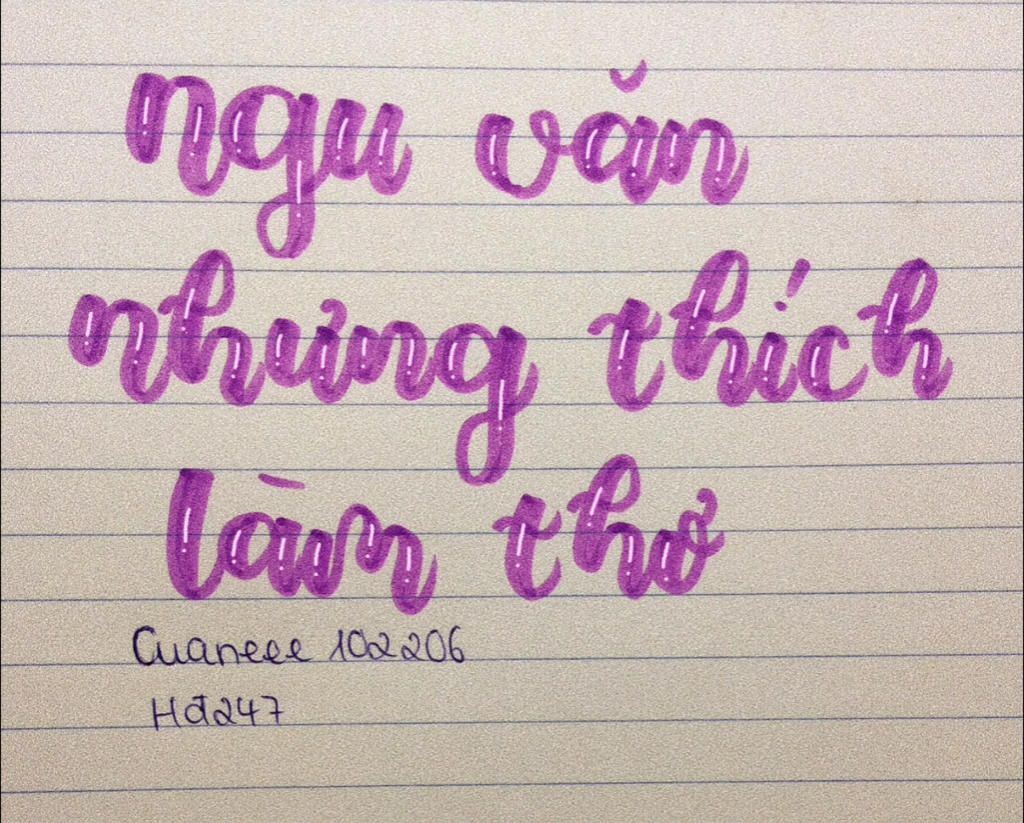 ngu văn
nhưng thích
làm thơ
Cuaneee 102206
Hđ247